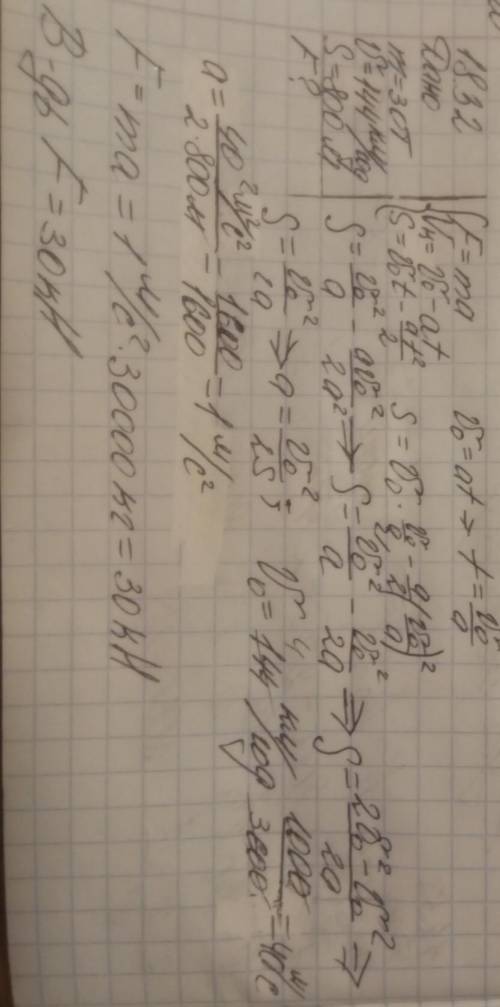 1832
Дано
m=30т
V₀=144 км/год
S=800м
F-?
{F=ma
Vк=V₀-at
S=V₀t-at²/2
V₀=at ⇒ t=V₀/a
S=V₀·V₀/a - a/2(V₀/a)²
S=V₀²/a - aV₀²/2a² ⇒ S=V₀²/a - V₀²/2a ⇒ S=2V₀²-V₀²/2a ⇒
S=V₀²/2a ⇒ a=V₀²/2S; V₀=144 км/год 1000/3600=40м/с
a=40²м²/с²/2·800м=1600/1600=1м/с²
F=ma=1м/с²·30000кг=30кН
В-дь F=30кН